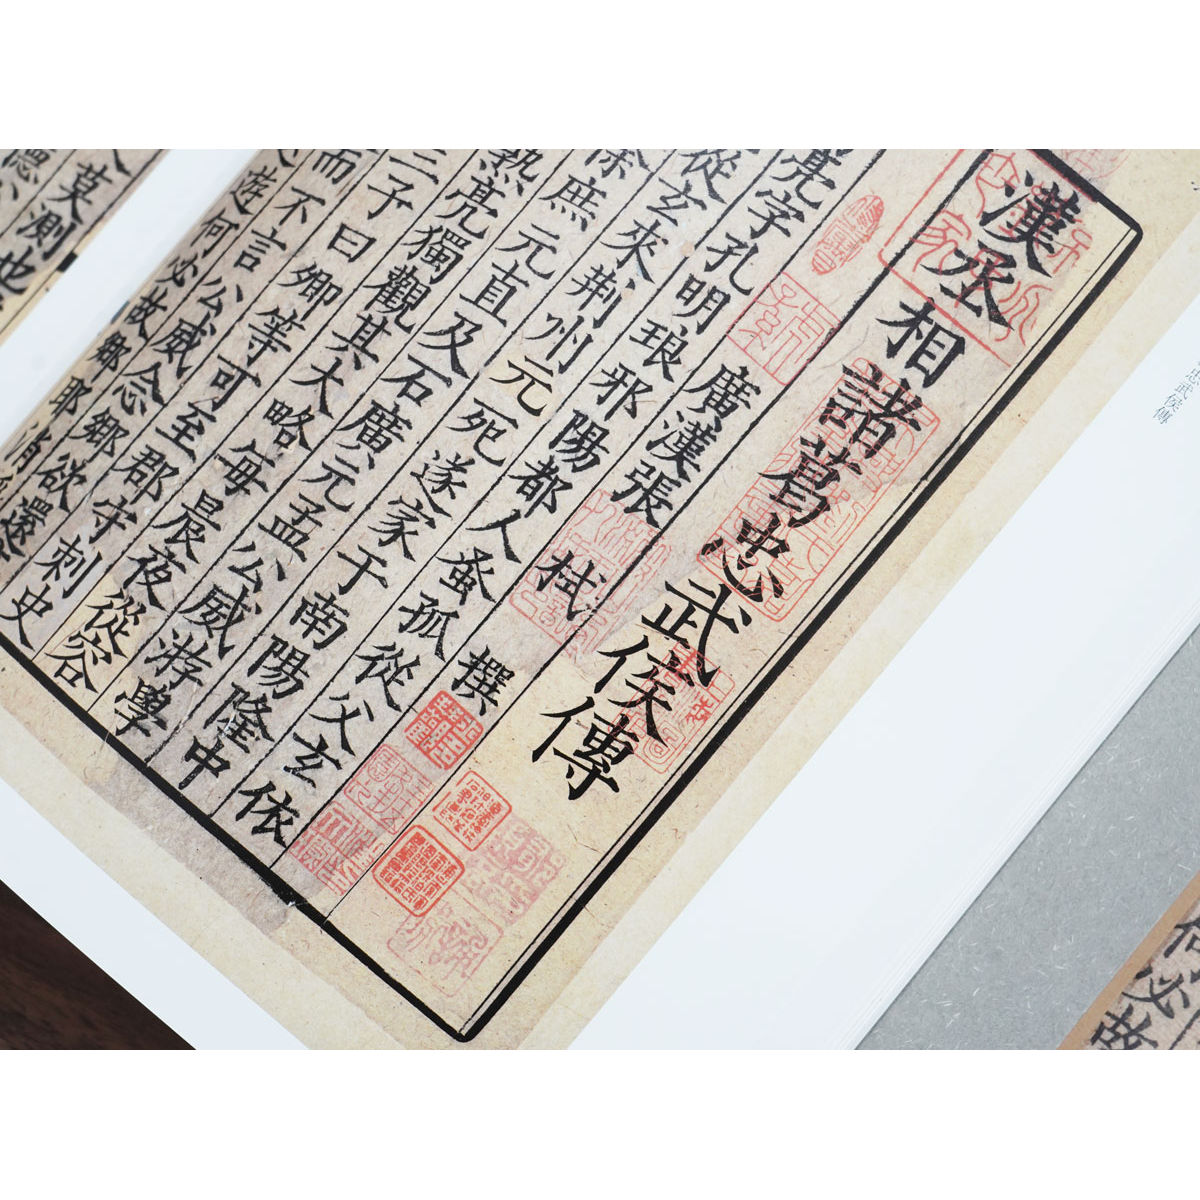 漢丞相諸葛忠武侯傳
廣漢張栻撰
亮字孔明琅邪陽都人蚤孤從父玄依
從玄來荆州元死遂家于南陽隆中
徐庶元直及石廣元孟公威游學
熟亮獨觀其大略每晨夜從容
三子曰卿等可至郡守刺史
而不言公威念鄉欲還
遊何必故鄉耶
莫測也
忠武侯傳
何必故